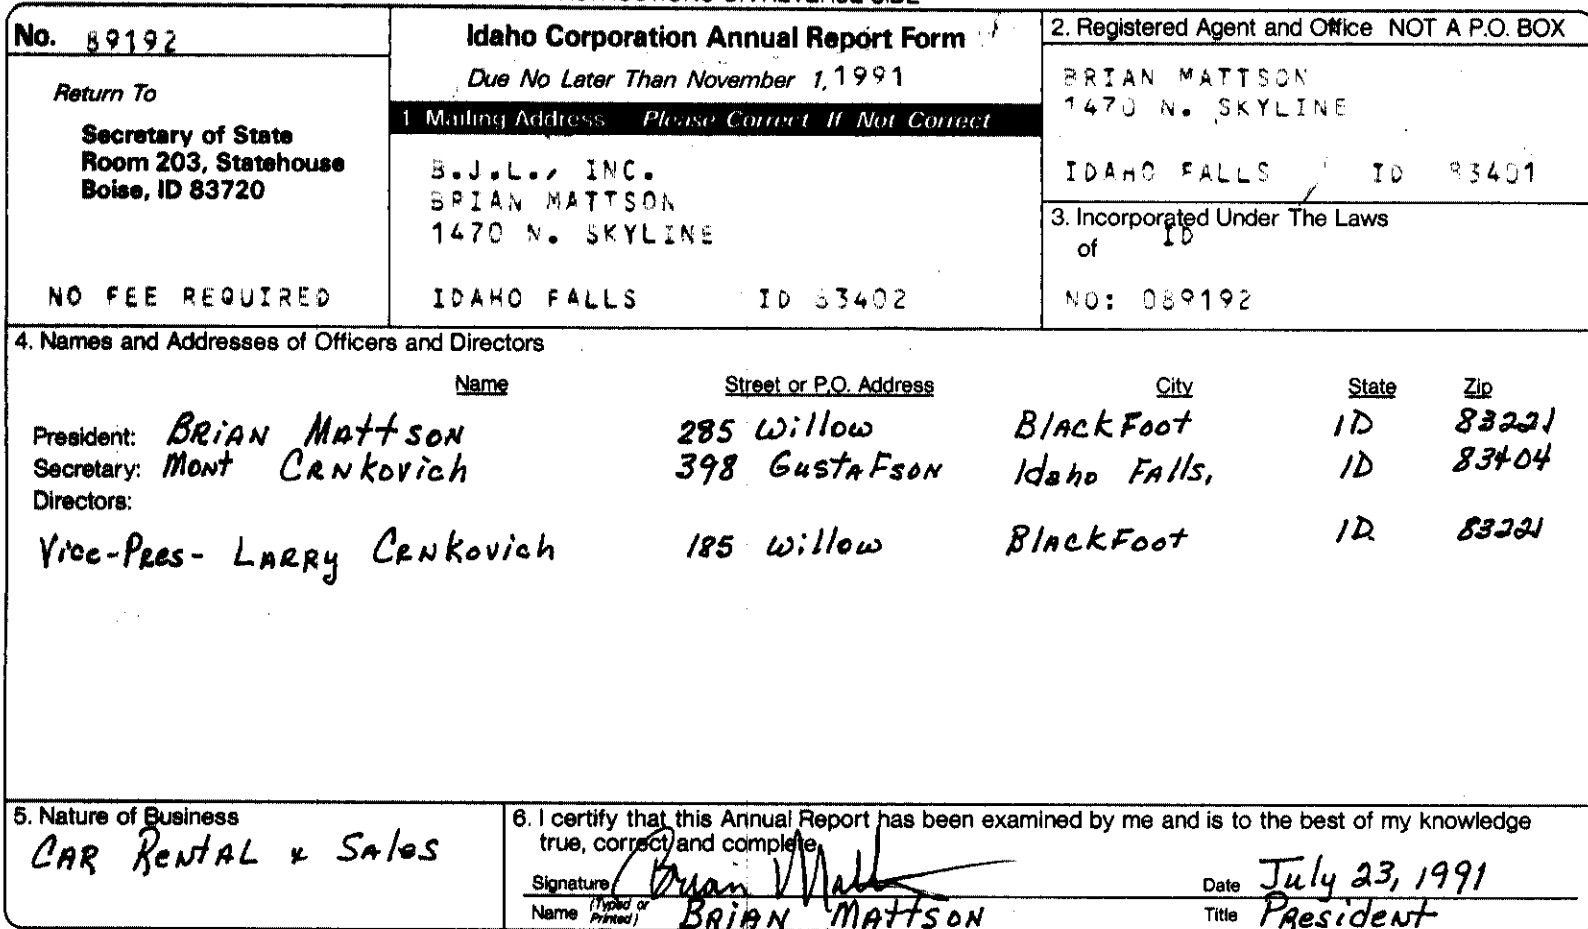 No. 89192
Return To
Secretary of State
Room 203, Statehouse
Boise, ID 83720
NO FEE REQUIRED
Idaho Corporation Annual Report Form
Due No Later Than November 1, 1991
1 Mailing Address Please Correct If Not Correct
B.J.L., INC.
BRIAN MATTSON
1470 N. SKYLINE
IDAHO FALLS ID 83402
2. Registered Agent and Office NOT A P.O. BOX
BRIAN MATTSON
1470 N. SKYLINE
IDAHO FALLS ID 83401
3. Incorporated Under The Laws
of ID
NO: 089192
4. Names and Addresses of Officers and Directors
Name Street or P.O. Address City State Zip
President: BRIAN MATTSON 285 Willow BlackFoot ID 83221
Secretary: MONT CRNKovich 398 GustAFSON Idaho FAlls, ID 83404
Directors:
Vice-Pres- LARRY CRNKovich 185 Willow BlackFoot ID. 83221
5. Nature of Business
CAR RentAL & SAles
6. I certify that this Annual Report has been examined by me and is to the best of my knowledge
true, correct and complete.
Signature Brian Matt Date July 23, 1991
Name (Typed or Printed) BRIAN MATTSON Title President